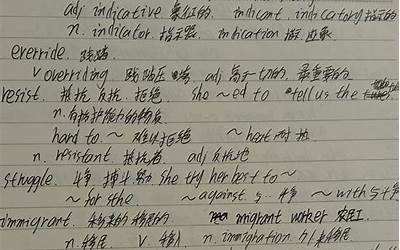 adj indicative 象征的. indicant. indicatory 指示的
n. indicator. 指示器. indication 指示 迹象
everride. 践踏
v overriding 践踏 adj 高于一切的. 最重要的
resist. 抵抗 反抗. 拒绝. she ~ed to tell us the
n.
hard to. ~ 难以拒绝 ~ heat 耐热
n. resistant. 抵抗者 adj 反抗地
struggle. 斗争 搏斗 努力 she try her best to ~
~ for sth ~ against. 与... 斗争 ~ with 与
immigrant. 移来的 移居的 migrant worker 农民工
n. 移民 v 移入 n. immigration 外来移民